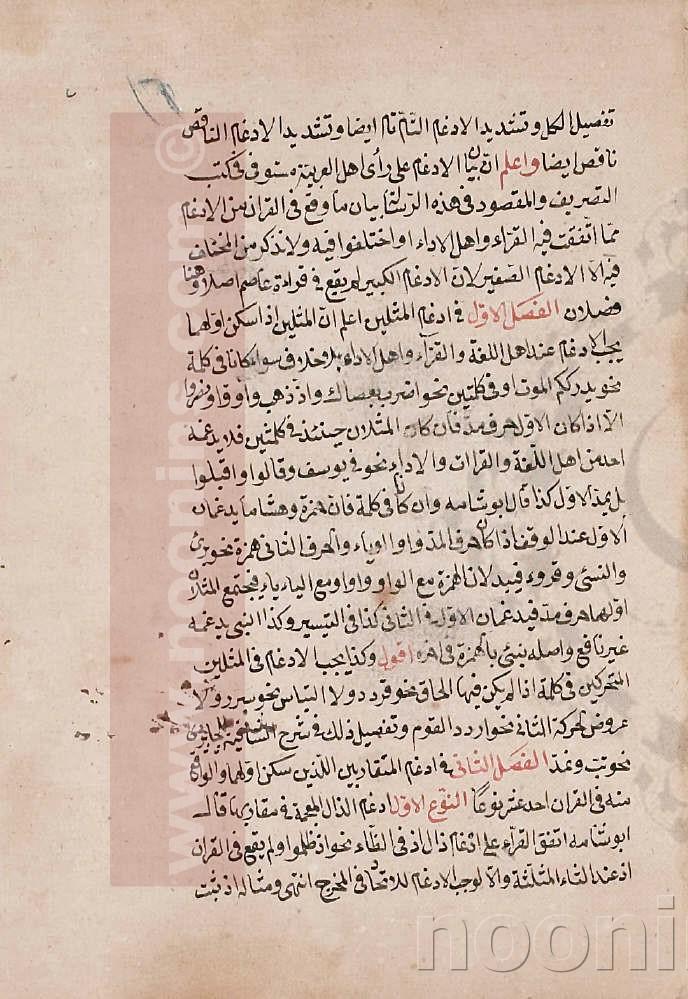 تفصيل الكل وتشديد الادغام التام تام ايضا وتشديد الادغام الناقص
ناقص ايضا واعلم ان بيان الادغام على رأى اهل العربية مستوفى فى كتب
التصريف والمقصود فى هذه الرسالة بيان ما وقع فى القران من الادغام
مما اتفقت فيه القراء واهل الاداء او اختلفوا فيه ولا نذكر من المختلف
فيه الا الادغام الصغير لان الادغام الكبير لم يقع فى قراءة عاصم اصلا وهنا
فصلان الفصل الاول فى ادغام المثلين اعلم ان المثلين اذا سكن اولهما
يجب الادغام عند اهل اللغة والقراء واهل الاداء بلا خلاف سواء كانا فى كلمة
نحو يدرككم الموت او فى كلمتين نحو اضرب بعصاك واذ ذهب وآووا ونصروا
الا اذا كان الاول حرف مد فان كان المثلان حينئذ فى كلمتين فلا يدغمه
احد من اهل اللغة والقراآت والاداء نحو فى يوسف وقالوا واقبلوا
بل يمد الاول كذا قال ابو شامه وان كانا فى كلمة فان حمزة وهشاما يدغمان
الاول عند الوقف اذا كان حرف المد واوا او ياء والحرف الثانى همزة نحو برئ
والنسئ وقروء فيبدلان الهمزة مع الواو واوا ومع الياء ياء فيجتمع المثلان
اولهما حرف مد فيدغمان الاول فى الثانى كذا فى التيسير وكذا النبى يدغمه
غير نافع واصله نبئ بالهمزة فى اخره اقول وكذا يجب الادغام فى المثلين
المتحركين فى كلمة اذا لم يكن فيها الحاق نحو قردد ولا التباس نحو سرر ولا
عروض لحركة الثانى نحو اردد القوم وتفصيل ذلك فى شرح الشافية
نحو تب ومد الفصل الثانى فى ادغام المتقاربين اللذين سكن اولهما والواقع
منه فى القران احد عشر نوعا النوع الاول ادغام الذال المعجمة فى مقاربها قال
ابو شامه اتفق القراء على ادغام ذال اذ فى الظاء نحو اذ ظلموا ولم يقع فى القران
اذ عند الثاء المثلثة والا لوجب الادغام للاتحاد فى المخرج انتهى ومثاله اذ ثبت
www.noonins.com ©
nooni